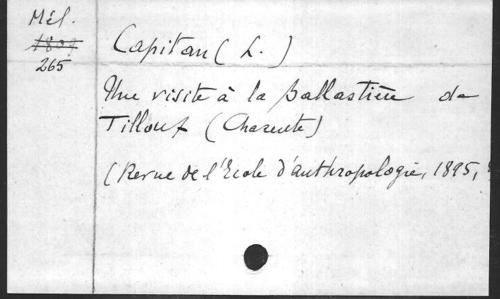 Mél.
1809
265
Capitan (L.)
Une visite à la Ballastière de
Tilloux (Charente)
(Revue de l'Ecole d'anthropologie, 1895,